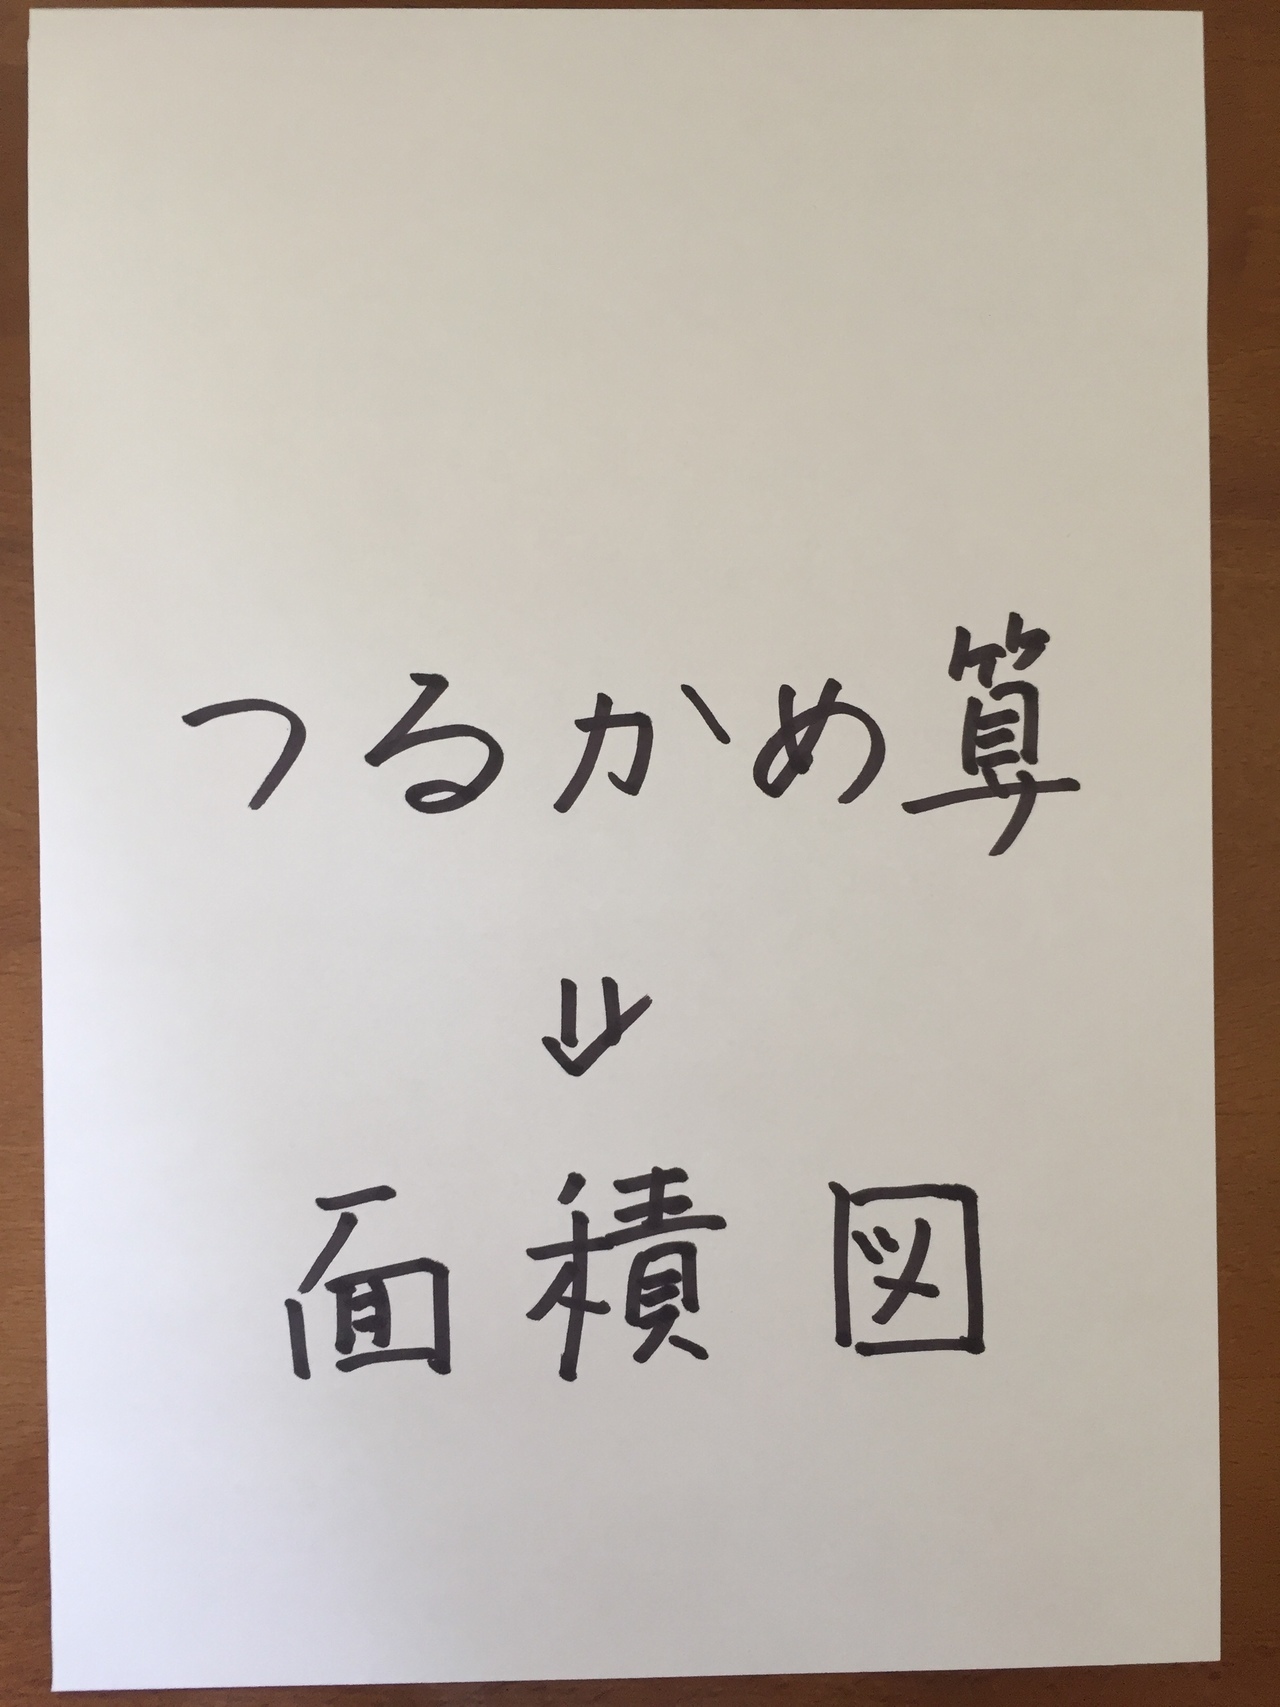 つるかめ算
⇓
面積図